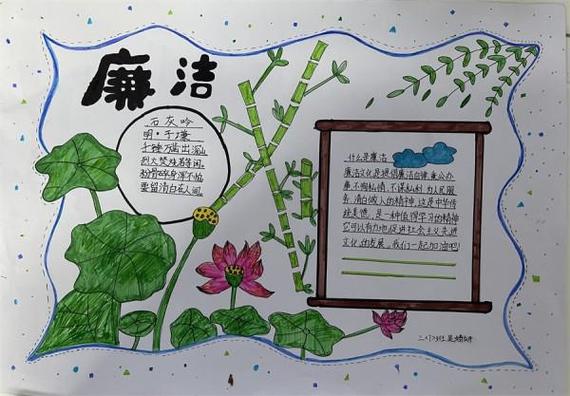 廉洁
石灰吟
明·于谦
千锤万凿出深山
烈火焚烧若等闲
粉骨碎身浑不怕
要留清白在人间
什么是廉洁
廉洁文化是提倡廉洁自律,秉公办
事,不徇私情,不谋私利,为人民服
务,清白做人的精神,这是中华传
统美德,是一种值得学习的精神
它可以有力地促进社会主义先进
文化的发展,我们一起加油吧